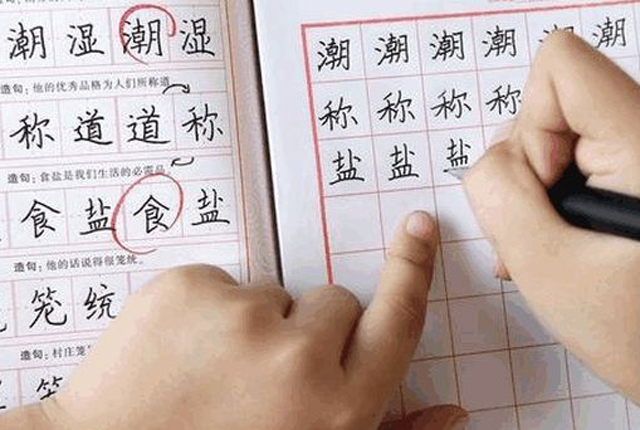 潮湿潮湿
造句：他的优秀品格为人们所称道
称道道称
造句：食盐是我们生活的必需品
食盐食盐
造句：他的话说得很笼统。
笼统
造句：村庄笼
潮潮潮潮潮
称称称称
盐盐盐